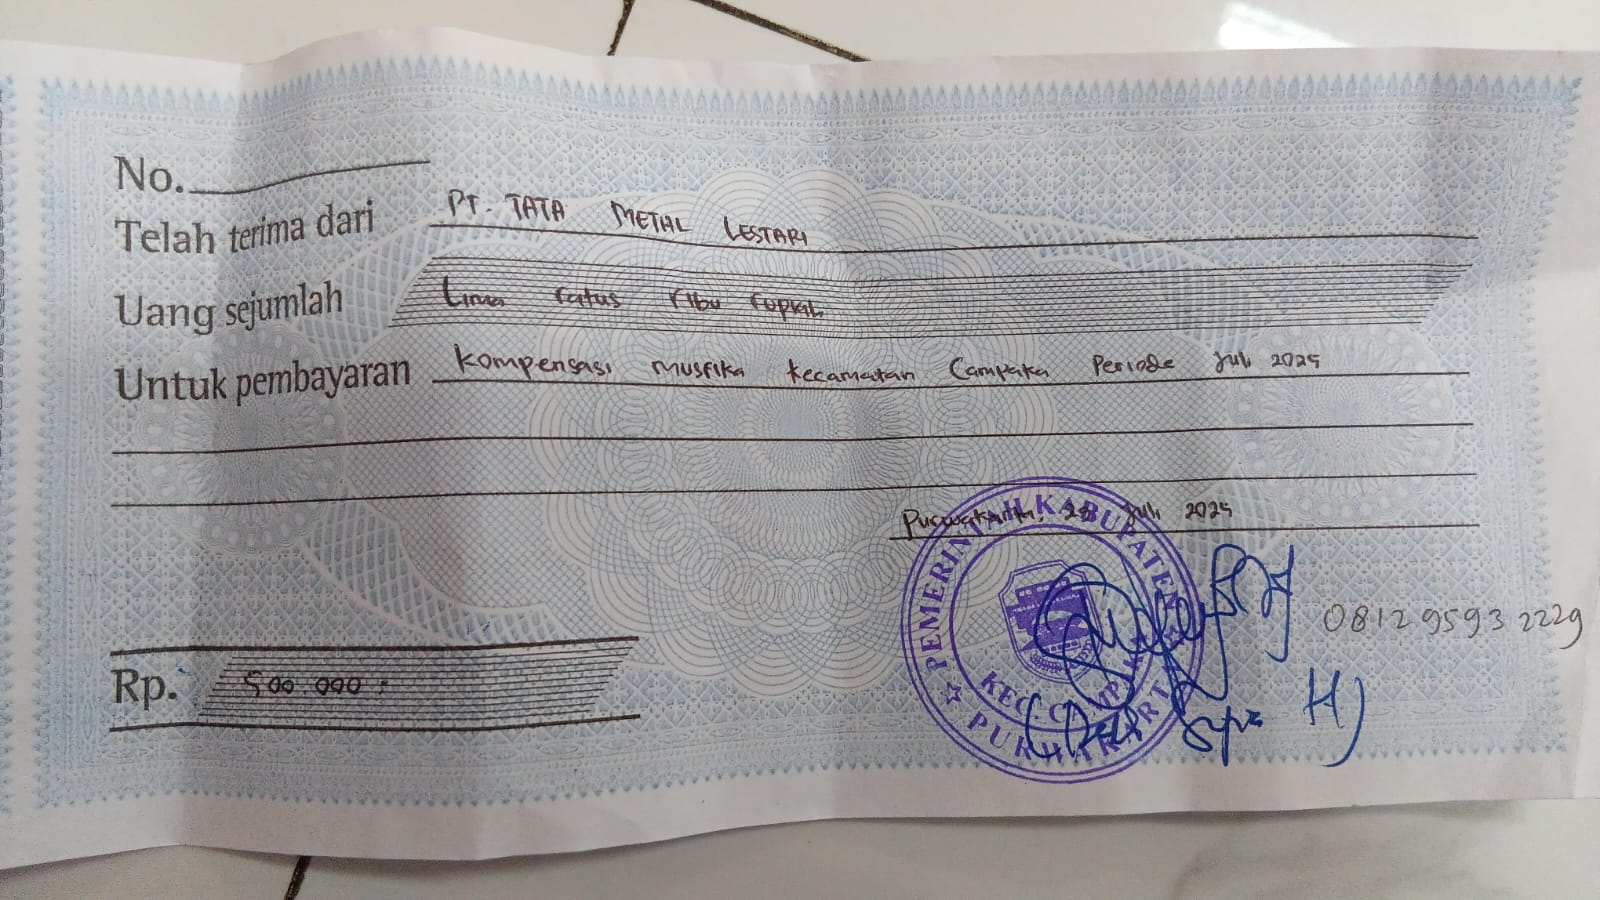 No.
Telah terima dari PT. TATA METAL LESTARI
Uang sejumlah Lima ratus ribu rupiah
Untuk pembayaran kompensasi musfika kecamatan Campaka Periode Juli 2025
Purwakarta, Juli 2025
PEMERINTAH KABUPATEN
KEC. CAMPAKA
PURWAKARTA
0812 9593 2229
Rp. 500.000